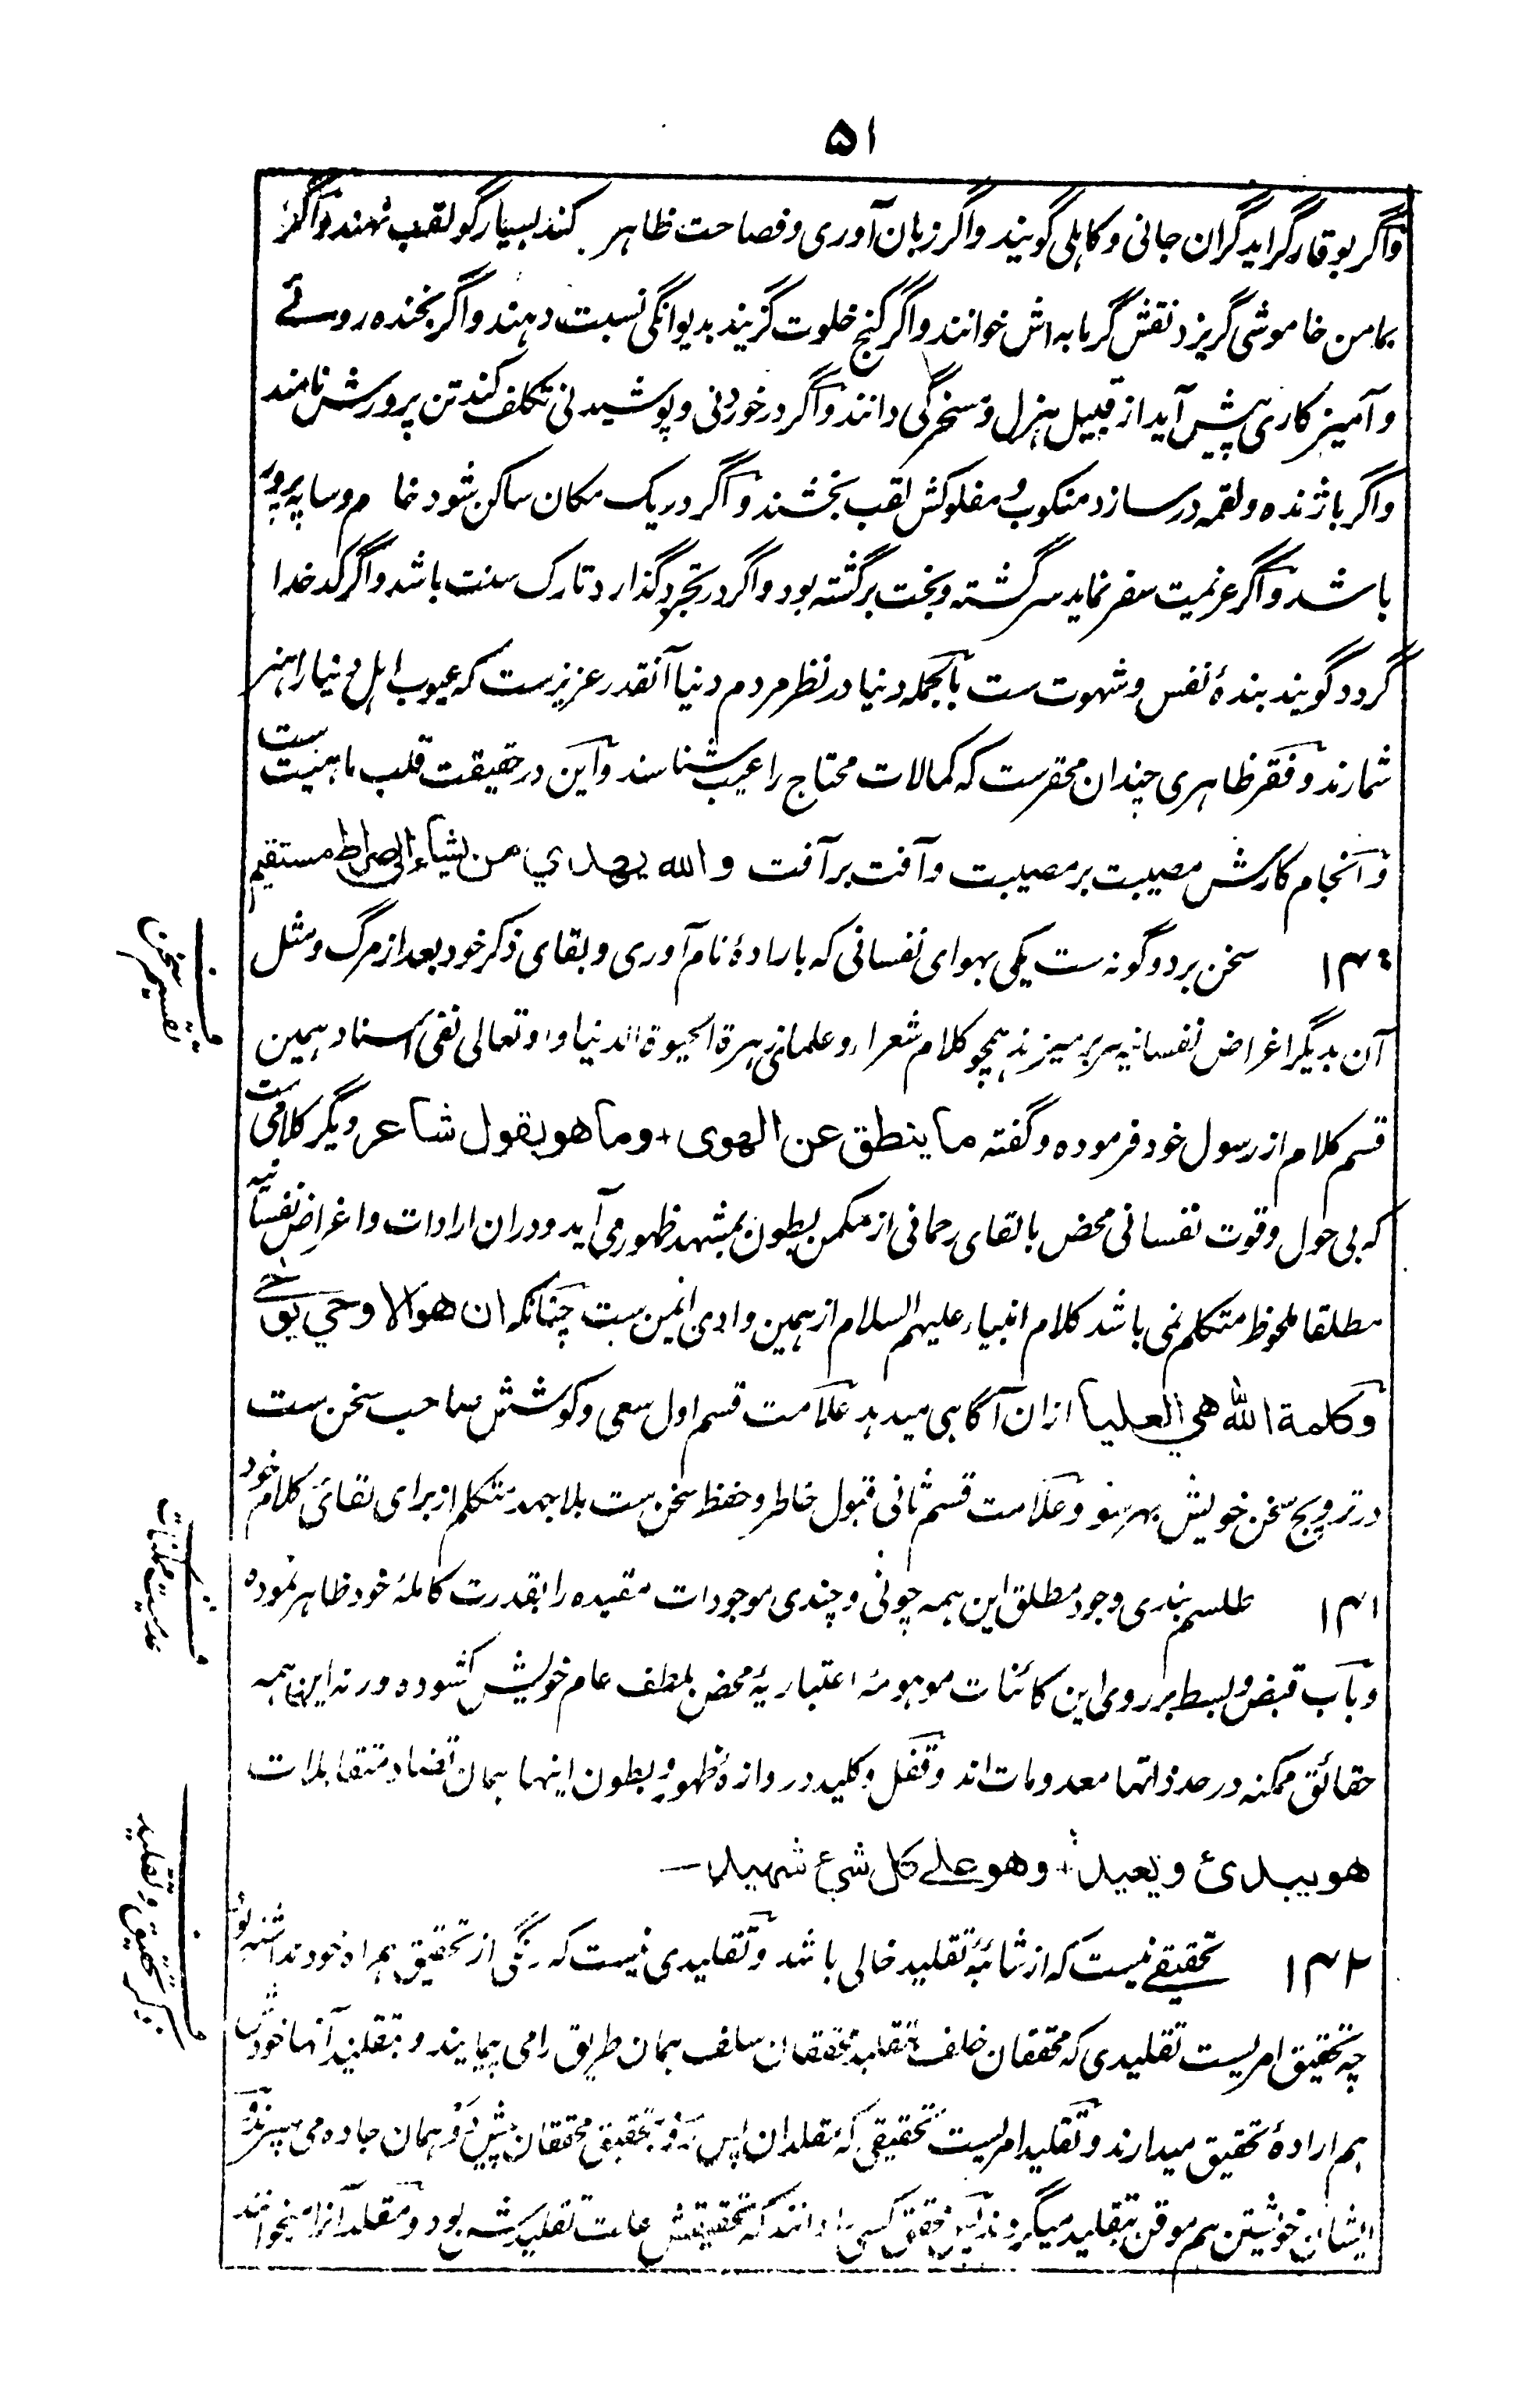 ۵۱
واگر بوقار گراید گران جانی و کاہلی گویند واگر زبان آوری و فصاحت ظاہر کند بسیار گو لقب نہند واگر
بمامن خاموشی گریزد نقش گرمابہ اش خوانند واگر کنج خلوت گزیند بدیوانگی نسبت دہند واگر بخندہ روئے
و آمیز کاری پیش آید از قبیل ہزل و مسخرگی دانند واگر در خوردنی و پوشیدنی تکلف کند تن پرورش نامند
واگر با ژندہ و لقمہ در سازد منکوب و مفلوکش لقب بخشند واگر در یک مکان ساکن شود خام و سایہ پرور
باشد واگر عزیمت سفر نماید سرگشتہ و بخت برگشتہ بود واگر در تجرد گذارد تارک سنت باشد واگر کدخدا
گردد گویند بندۂ نفس و شہوت ست بالجملہ دنیا در نظر مردم دنیا آنقدر عزیزست کہ عیوب اہل دنیا را ہنر
شمارند و فقر ظاہری چندان محقرست کہ کمالات محتاج را عیب شناسند و این در حقیقت قلب ماہیت ست
و انجام کارش مصیبت بر مصیبت و آفت بر آفت والله يهدي من يشاء الى صراط مستقيم
۱۳۰ سخن بر دو گونہ ست یکی بہوای نفسانی کہ بارادۂ نام آوری و بقای ذکر خود بعد از مرگ و مثل
تقسیم سخن
آن بدیگر اغراض نفسانیہ سر بر میزند ہمچو کلام شعراء و علمای زہرۃ الحیوۃ الدنیا و او تعالی نفی اسناد ہمین
قسم کلام از رسول خود فرمودہ و گفتہ ما ينطق عن الهوى + وما هو بقول شاعر دیگر کلامی ست
کہ بی حول و قوت نفسانی محض بالقای رحمانی از مکمن بطون بمشہد ظہور می آید و دران ارادات و اغراض نفسانیہ
مطلقا ملحوظ متکلم نمی باشد کلام انبیاء علیہم السلام از ہمین وادی ایمن ست چنانکہ ان هو الا وحي يوحى
وكلمة الله هي العليا ازان آگاہی میدہد علامت قسم اول سعی و کوشش صاحب سخن ست
در ترویج سخن خویش بہر سو و علامت قسم ثانی قبول خاطر و حفظ سخن ست بلا جہد متکلم از برای بقائ کلام خود
۱۳۱ طلسم بندی وجود مطلق این ہمہ چونی و چندی موجودات مقیدہ را بقدرت کاملۂ خود ظاہر نمودہ
عدمیت ممکنات
و باب قبض و بسط بر روی این کائنات موہومۂ اعتباریۂ محض بلطف عام خویش کشودہ ورنہ این ہمہ
حقائق ممکنہ در حد ذاتہا معدومات اند و قفل و کلید دروازۂ ظہور و بطون اینہا ہمان تضاد متقابلات
هو يبدئ ويعيد + وهو على كل شيء شهيد
۱۳۲ تحقیقے نیست کہ از شائبۂ تقلید خالی باشد و تقلیدی نیست کہ رنگی از تحقیق ہمراہ خود نداشتہ بود
ذکر تحقیق و تقلید
چہ تحقیق امریست تقلیدی کہ محققان خلف بتقلید محققان سلف ہمان طریق را می پیمایند و بتقلید آنہا خودشان
ہم ارادۂ تحقیق میدارند و تقلید امریست تحقیقی کہ مقلدان پس رو بتحقیق محققان پیش رو ہمان جادہ می سپرند و
ایشان خویشتن ہم موقن بتقلید میگروند لیکن محقق کسی را دانند کہ تحقیقش علت تقلیدش بود و مقلد آنرا میخوانند